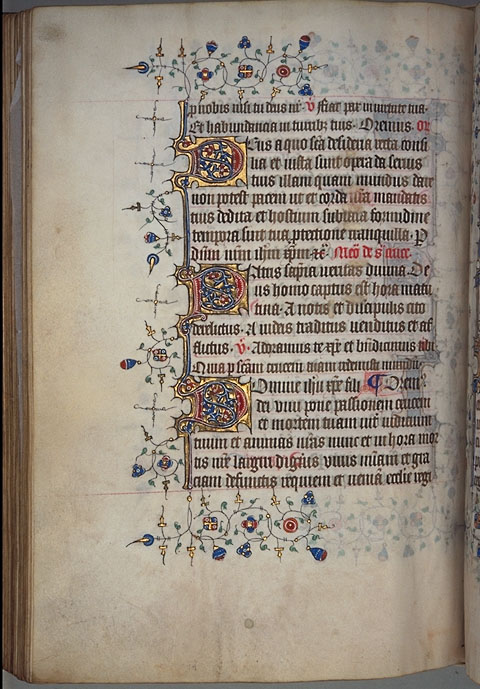 p nobis nisi tu deus nr. V fiat pax in uirtute tua.
Et habundancia in turribz tuis. Oremus. or
Deus a quo sca desideria recta consi
lia et iusta sunt opera da seruis
tuis illam quam mundus dare
non potest pacem ut et corda nra mandatis
tuis dedita et hostium sublata formidine
tempora sint tua ptectione tranquilla. P
dnm nrm ihm xpm
Patris sapia ueritas diuina. De
us homo captus est hora matu
tina. A notis et discipulis cito
derelictus. A iudeis traditus uenditus et af
flictus. V Adoramus te xpe et bndicimus tibi.
Quia p scam crucem tuam redemisti mundu.
Domine ihu xpe fili Orem
dei uiui pone passionem crucem
et mortem tuam int iudicium
tuum et animas nras nunc et in hora mor
tis nre largiri digneris uiuis miam et gra
ciam defunctis requiem et ueniam ecclie regi